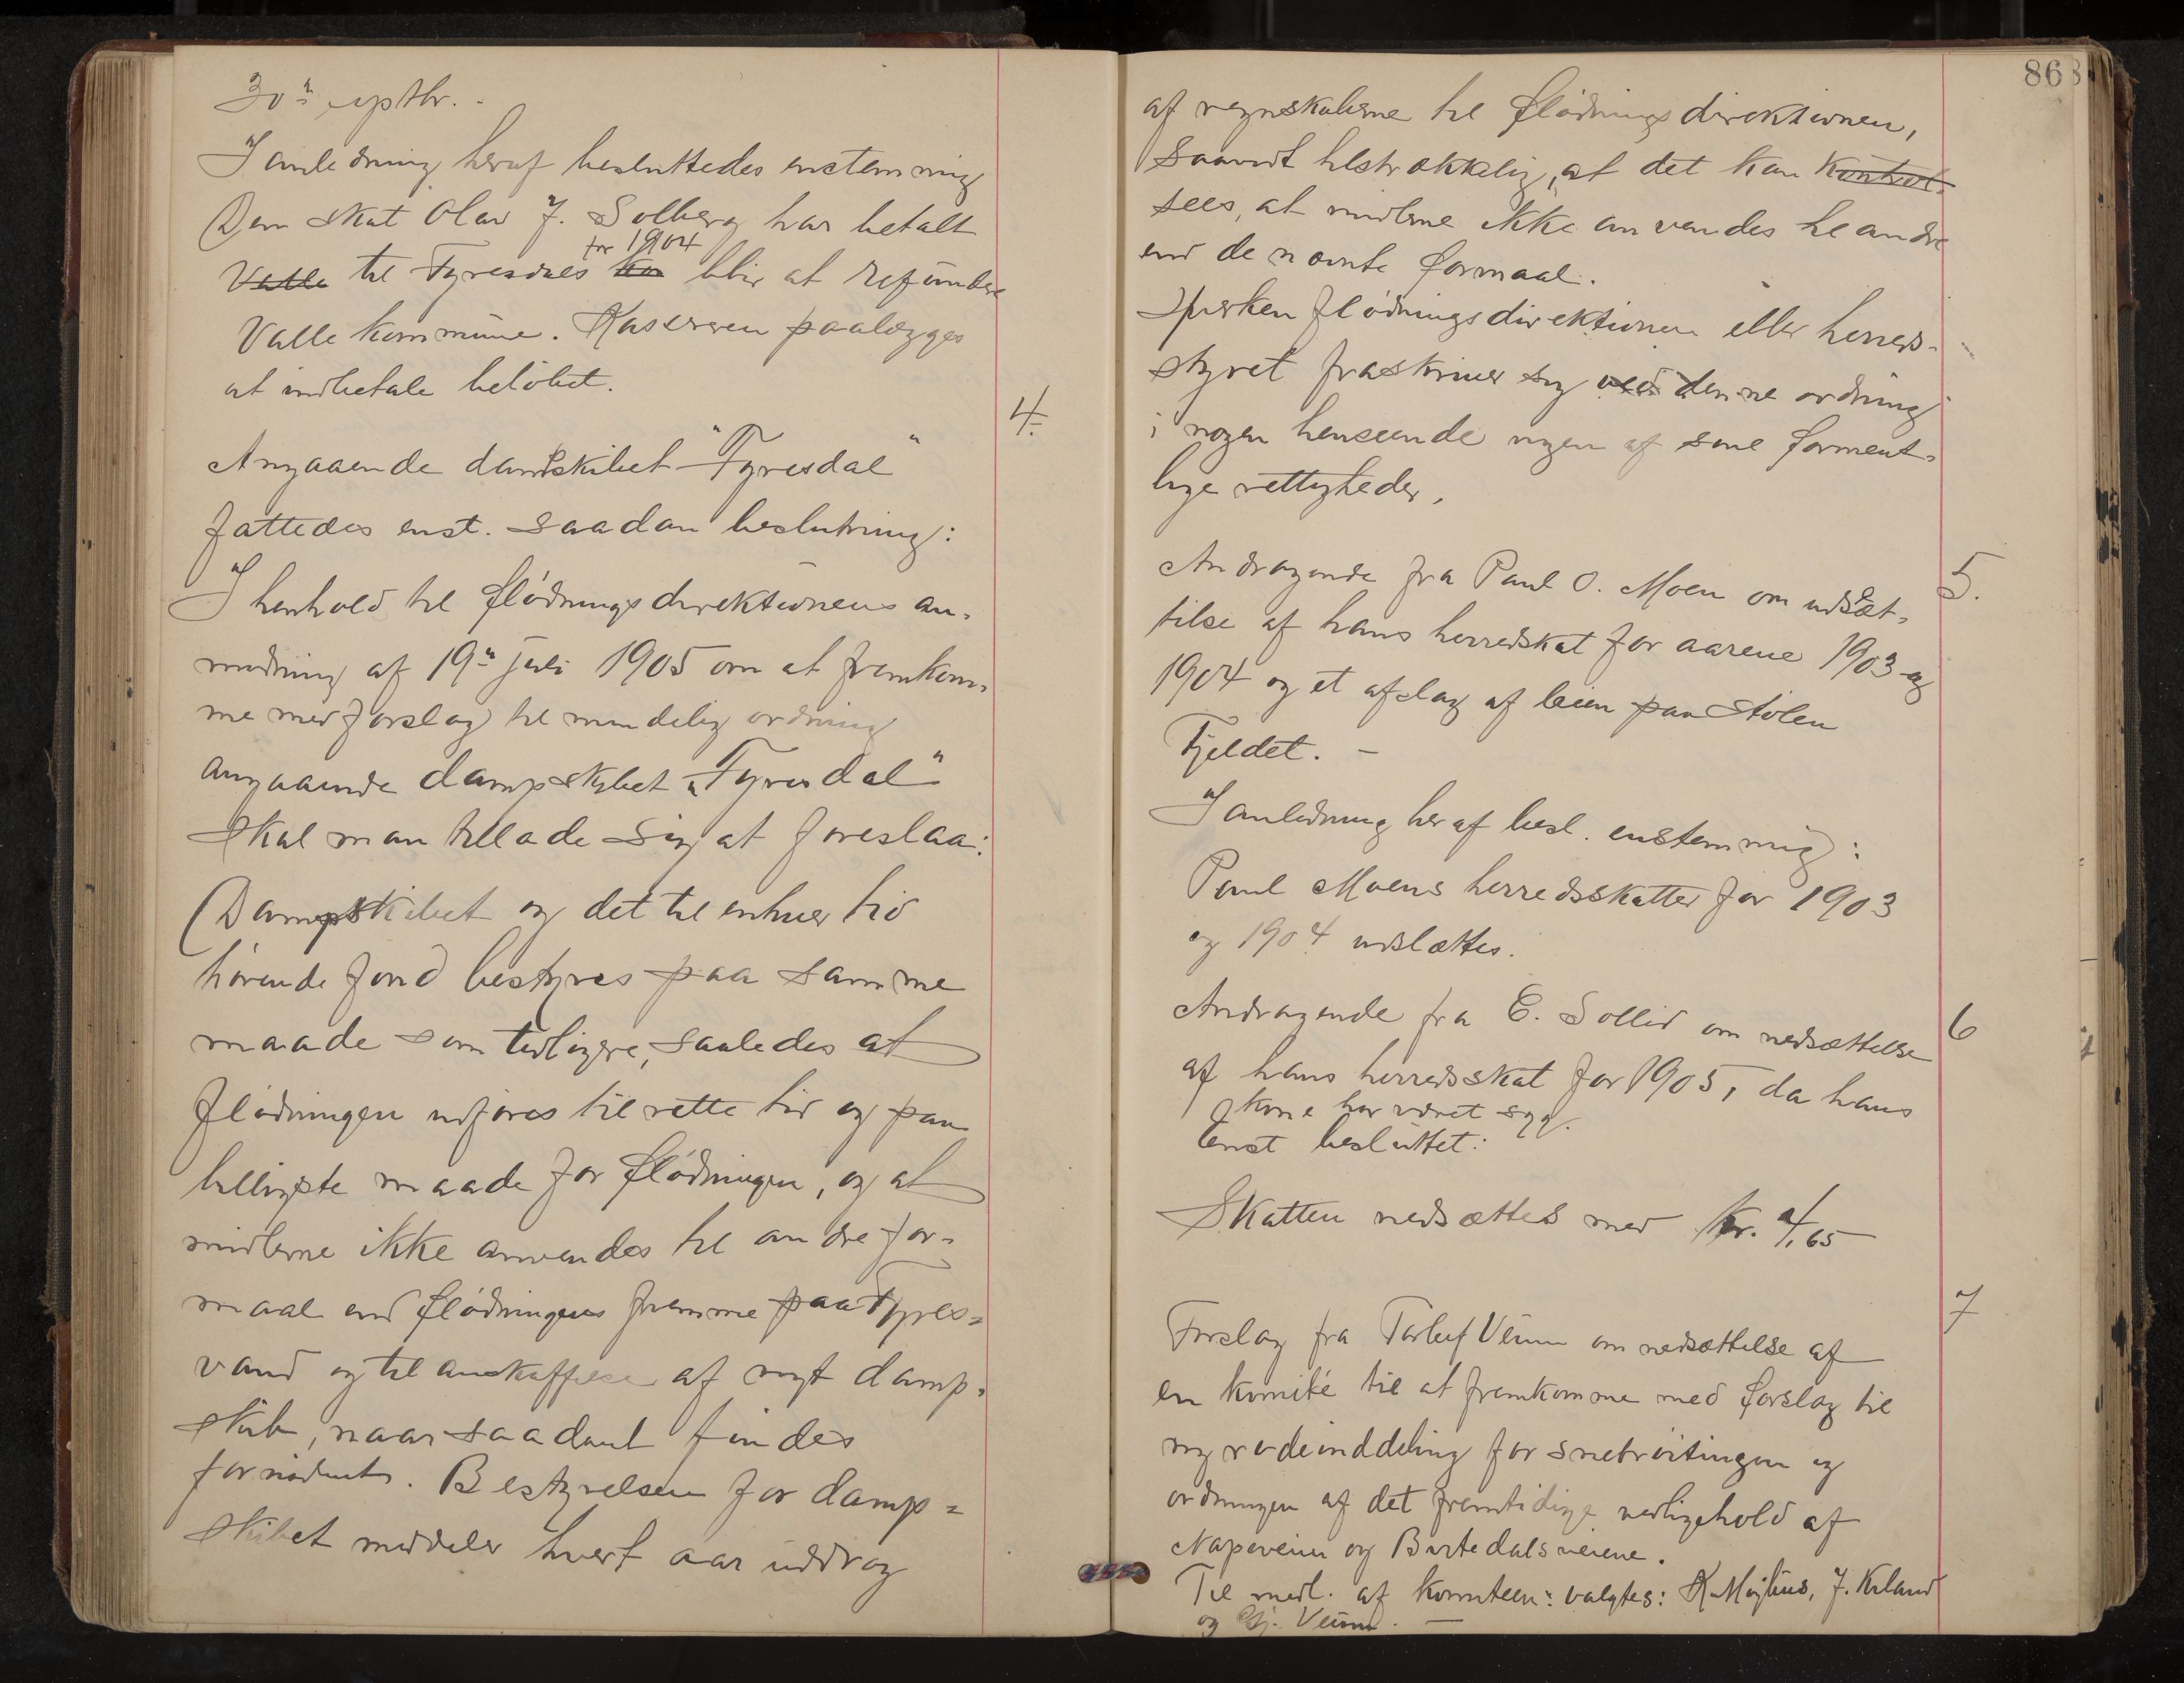 30te septbr. -
I anledning heraf besluttedes enstemmig
Den skat Olav J. Solberg har betalt
for 1904
Valle til Tyresdals blir at refundere
Valle kommune. Kasseren paalægges
at indbetale beløbet.
4.
Angaaende dampskibet "Tyresdal"
fattedes enst. saadan beslutning:
I henhold til flødningsdirektionens an-
modning af 19de juli 1905 om at fremkom-
me med forslag til mindelig ordning
angaaende dampskibet "Tyresdal"
skal man tillade sig at foreslaa:
Dampskibet og det til enhver tid
hørende fond bestyres paa samme
maade som tidligere, saaledes at
flødningen udføres til rette tid og paa
billigste maade for flødningen, og at
midlerne ikke anvendes til andre for-
maal end flødningens fremme paa Tyres-
vand og til anskaffelse af nyt damp-
skib, naar saadant findes
fornødent. Bestyrelsen for damp-
skibet meddeler hvert aar uddrag
868
af regnskaberne til flødningsdirektionen,
saavidt tilstrækkelig, at det kan kontrol-
sees, at midlerne ikke anvendes til andre
end de nævnte formaal.
Hverken flødningsdirektionen eller herreds-
styret fraskriver sig ved denne ordning
i nogen henseende nogen af sine forment-
lige rettigheder.
5.
Andragende fra Paul O. Moen om udslet-
telse af hans herredskat for aarene 1903 og
1904 og et afslag af leien paa Stølen
Fjeldet. -
I anledning heraf besl. enstemmig:
Paul Moens herredsskatter for 1903
og 1904 udslættes.
6
Andragende fra E. Sollid om nedsættelse
af hans herredsskat for 1905, da hans
kone har været syg.
Enst besluttet:
Skatten nedsættes med kr. 4,65
7
Forslag fra Torleif Veum om nedsættelse af
en komité til at fremkomme med forslag til
ny rodeinddeling for snebrøitingen og
ordningen af det fremtidige vedligehold af
Napeveien og Birtedalsveiene.
Til medl. af komiteen: valgtes: K. Mojlius, J. Kiland
og Gj. Veum. -